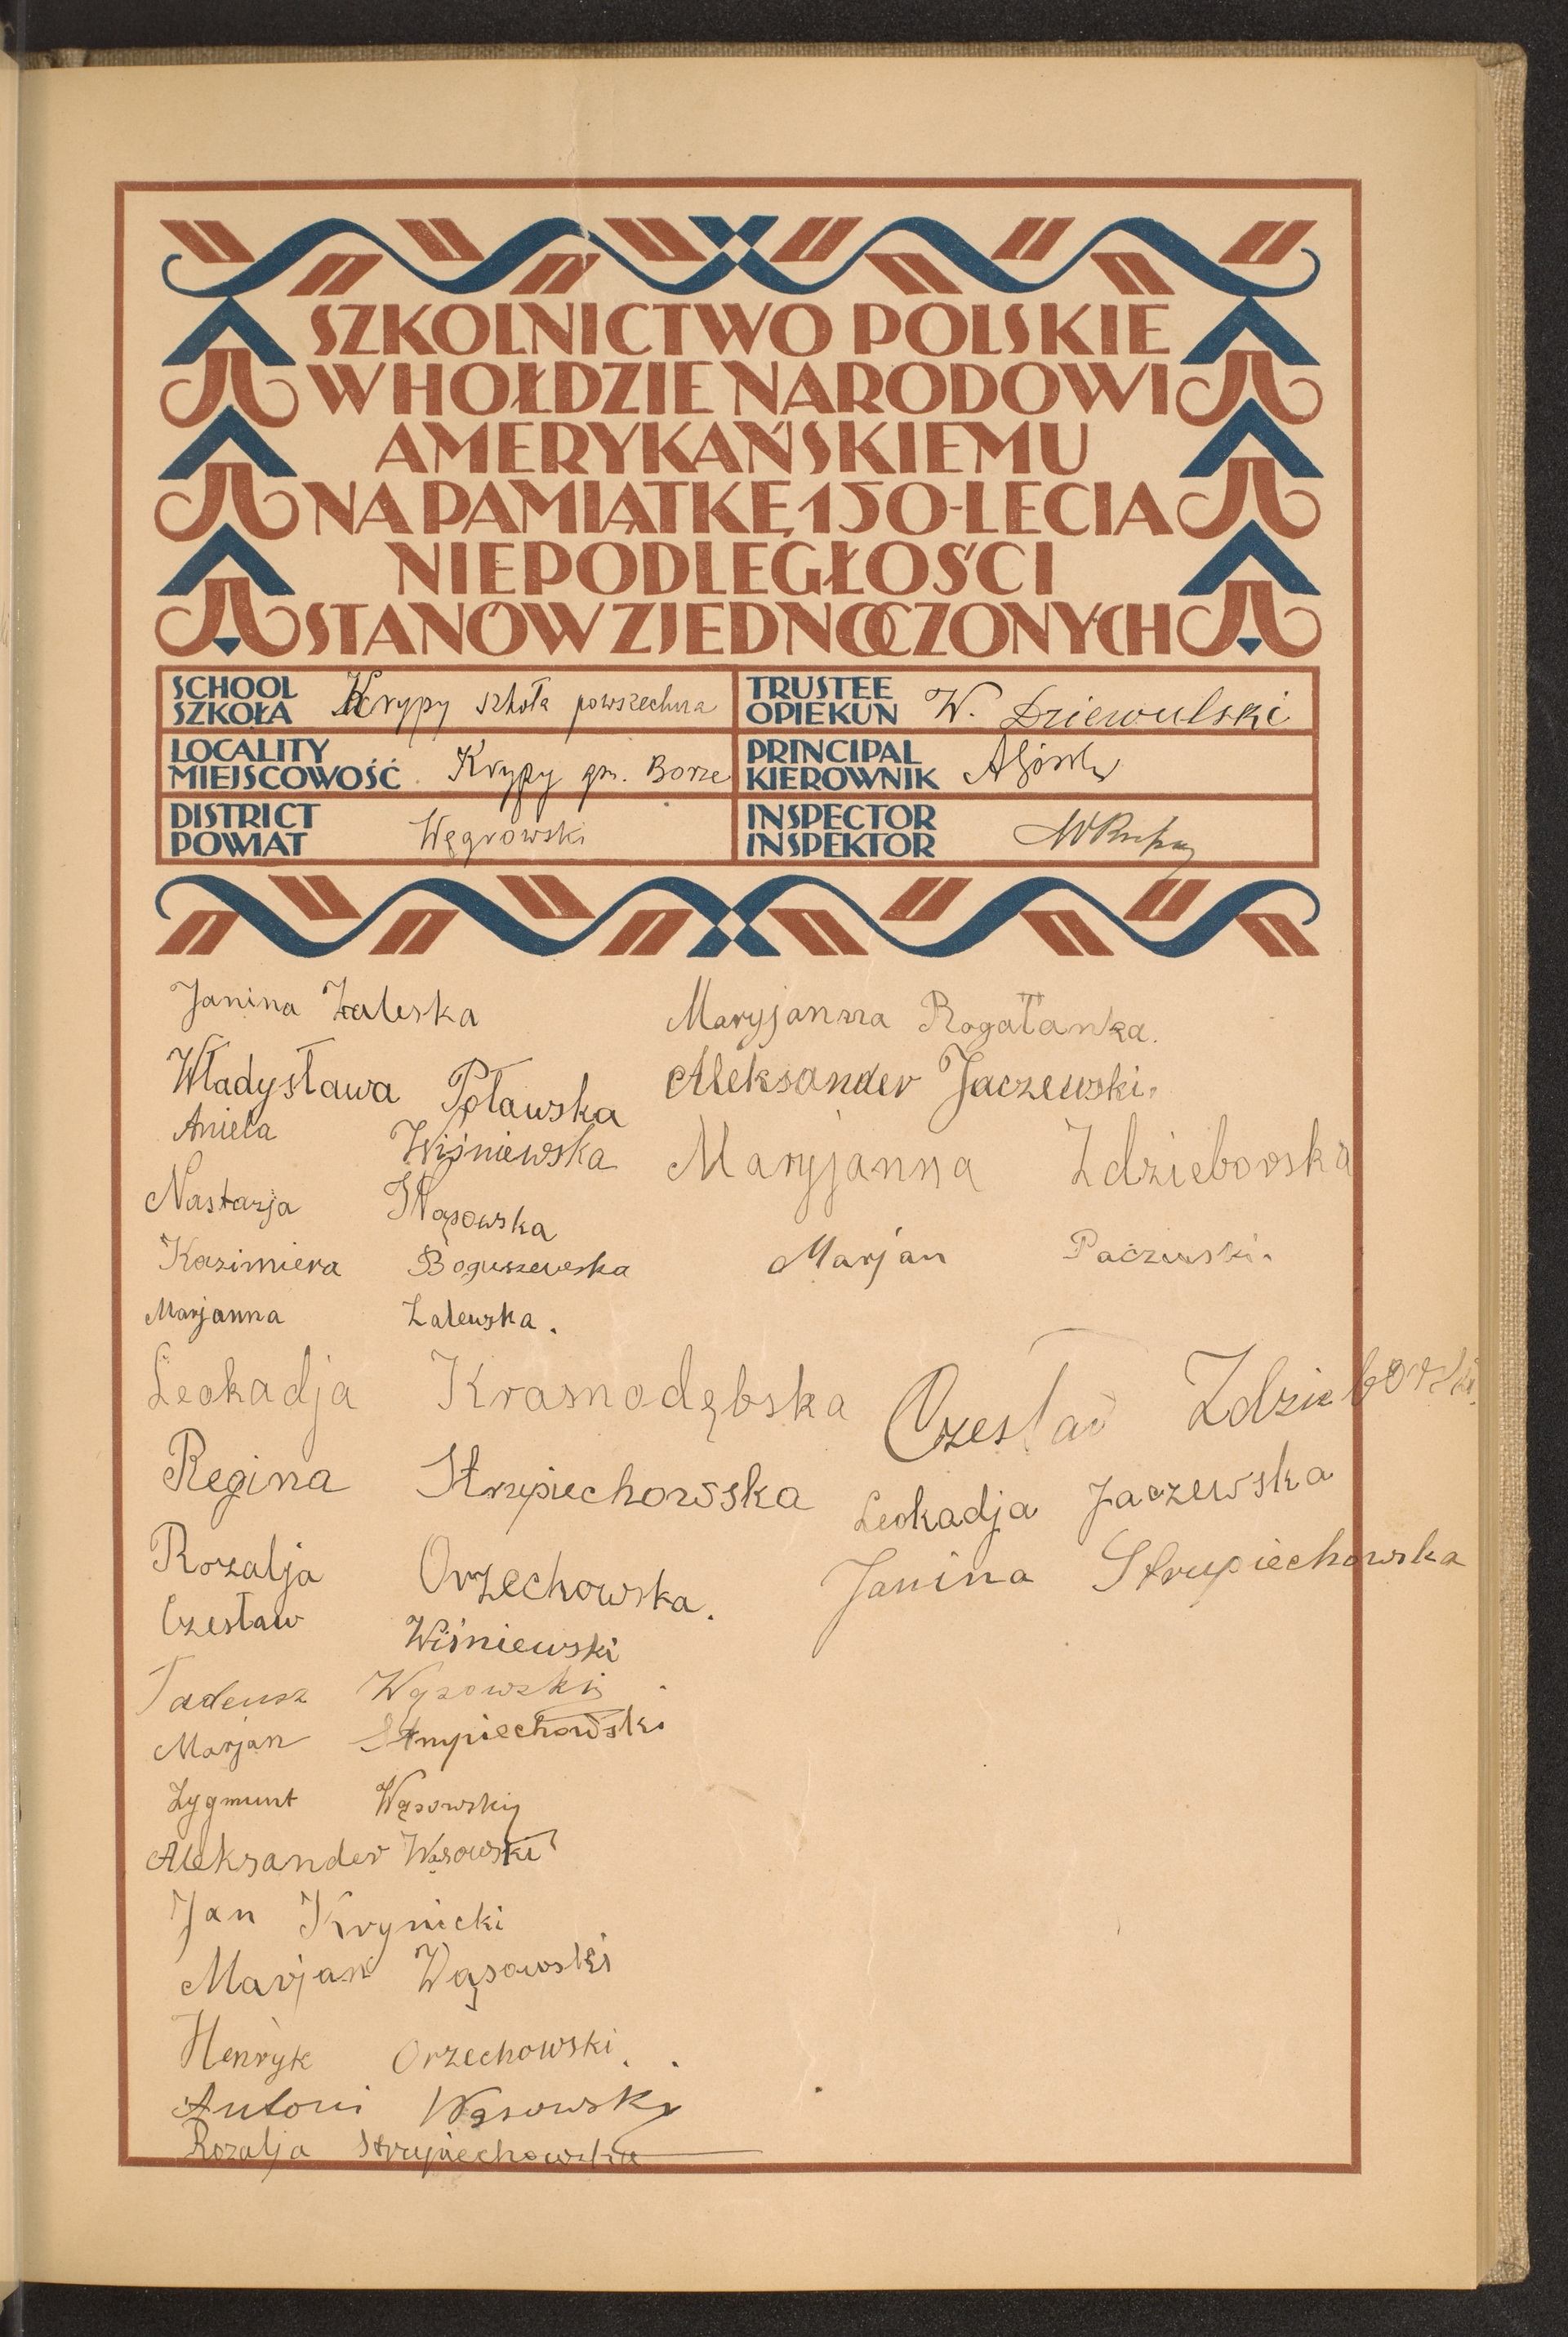 SZKOLNICTWO POLSKIE
W HOŁDZIE NARODOWI
AMERYKAŃSKIEMU
NA PAMIĄTKĘ 150-LECIA
NIEPODLEGŁOŚCI
STANÓW ZJEDNOCZONYCH
SCHOOL
SZKOŁA
Krypy szkoła powszechna
TRUSTEE
OPIEKUN
W. Dziewulski
LOCALITY
MIEJSCOWOŚĆ
Krypy gm. Borze
PRINCIPAL
KIEROWNIK
DISTRICT
POWIAT
Węgrowski
INSPECTOR
INSPEKTOR
Janina Zaleska
Władysława Poławska
Aniela Wiśniewska
Nastazja Wąsowska
Kazimiera Boguszewska
Marjanna Zalewska.
Leokadja Krasnodębska
Regina Strupiechowsska
Rozalja Orzechowska.
Czesław Wiśniewski
Tadeusz Wąsowski
Marjan Strupiechowski
Zygmunt Wąsowskij
Aleksander Wąsowski
Jan Krynicki
Marjan Wąsowski
Henryk Orzechowski.
Antoni Wąsowski
Rozalja Strupiechowska
Maryjanna Rogatanka.
Aleksander Jaczewski.
Maryjanna Zdzieborska
Marjan Paczewski.
Czesław Zdzieborski.
Leokadja Jaczewska
Janina Strupiechowska